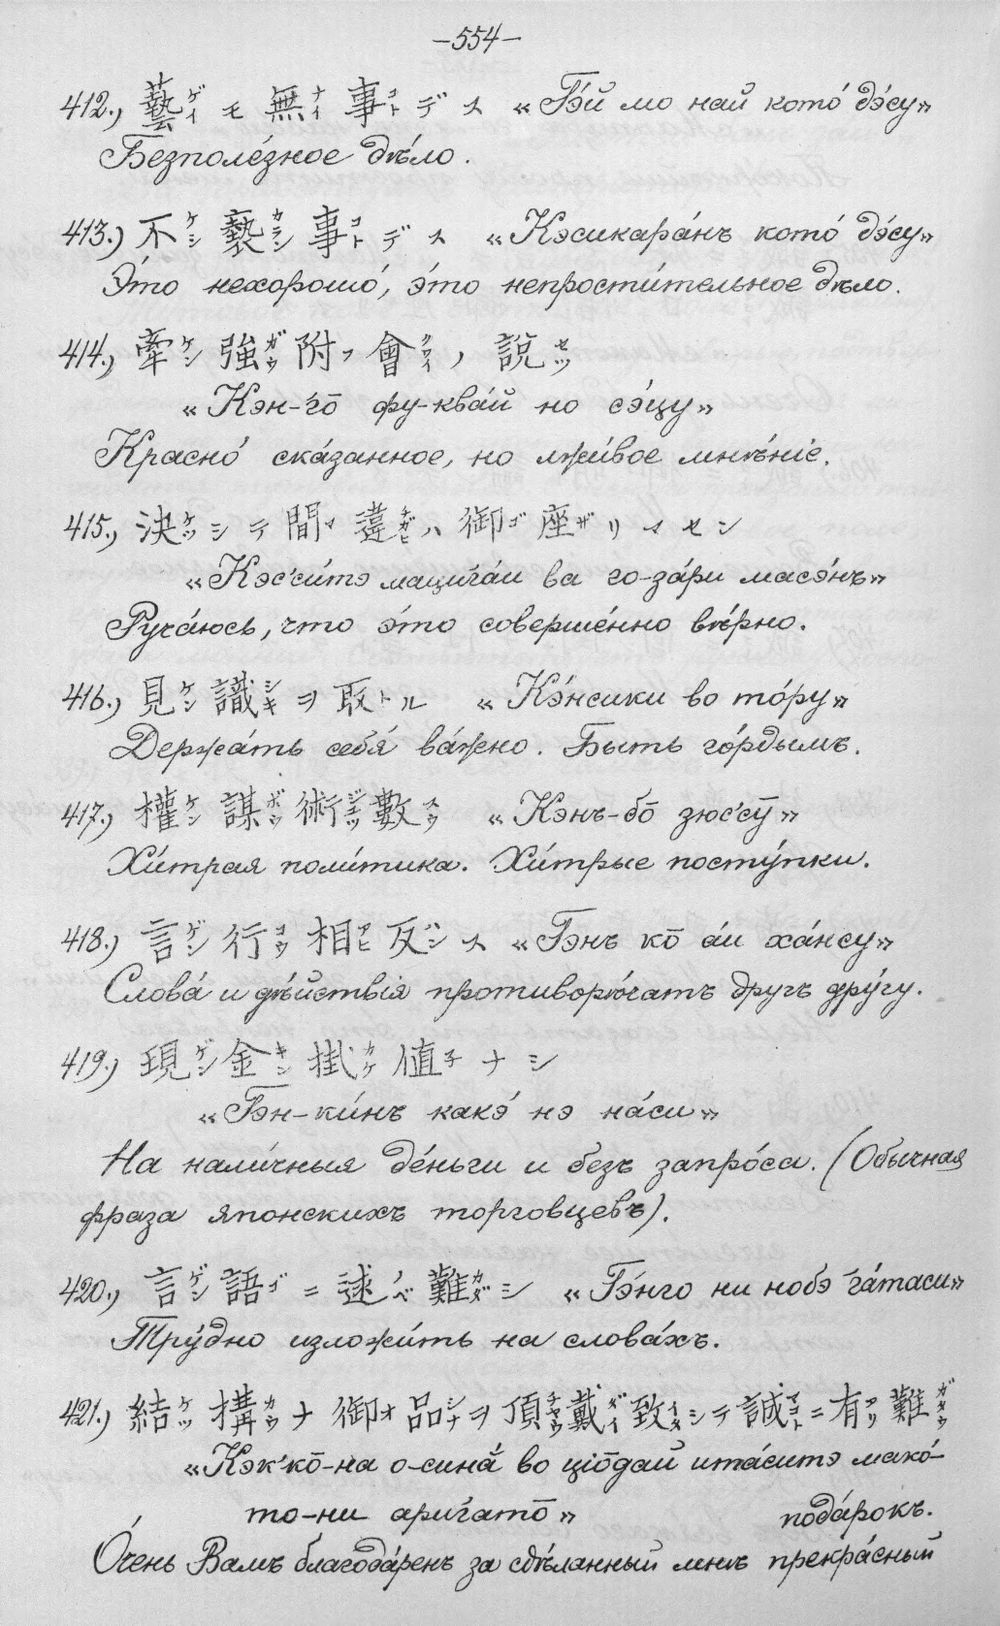 –554–
412.) 藝ゲイモ無ナイ事コトデス «Гэ́й мо най кото́ дэ́су»
Безполе́зное дѣ́ло.
413.) 不ケシ藝カラン事コトデス «Кэсикара́нъ кото́ дэ́су»
Э́то нехорошо́, э́то непрости́тельное дѣло.
414.) 牽ケン強ガウ附フ會クワイノ說セツ
«Кэн-го̄ фу-ква́й но сэ́цу»
Красно́ ска́занное, но лжи́вое мнѣ́ніе.
415.) 決ケツシテ間マ違チガヒハ御ゴ座ザリマセン
«Кэс'си́тэ мацига́и ва го-за́ри масэ́нъ»
Руча́юсь, что э́то соверше́нно вѣ́рно.
416.) 見ケン識シキヲ取トル «Кэ́нсики во то́ру»
Держа́ть себя́ ва́жно. Быть го́рдымъ.
417.) 權ケン謀ボウ術ジツ數スウ «Кэнъ-бо̄ зюс'сӯ»
Хи́трая поли́тика. Хи́трые посту́пки.
418.) 言ゲン行コウ相アヒ反ハンス «Гэнъ ко̄ а́и ха́нсу»
Слова́ и дѣ́йствія противорѣ́чатъ другъ дру́гу.
419.) 現ゲン金キン掛カケ値子ナシ
«Гэн-ки́нъ какэ́ нэ на́си»
На нали́чныя де́ньги и безъ запро́са. (Обычная
фраза японскихъ торговцевъ).
420.) 言ゲン語ゴニ述ノベ難ガタシ «Гэ́нго ни нобэ га́таси»
Тру́дно изложи́ть на слова́хъ.
421.) 結ケツ構カウナ御オ品シナヲ頂チヤウ戴ダイ致イタシテ誠マコトニ有アリ難ガタウ
«Кэк'ко̄-на о-сина́ во ціо̄дай ита́ситэ мако́-
то-ни арига́то̄» пода́рокъ.
О́чень Вамъ благода́ренъ за сдѣ́ланный мнѣ прекра́сный